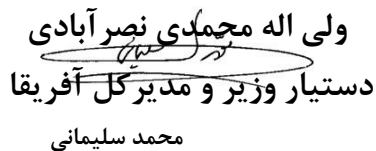 ولی اله محمدی نصرآبادی
دستیار وزیر و مدیرکل آفریقا
محمد سلیمانی